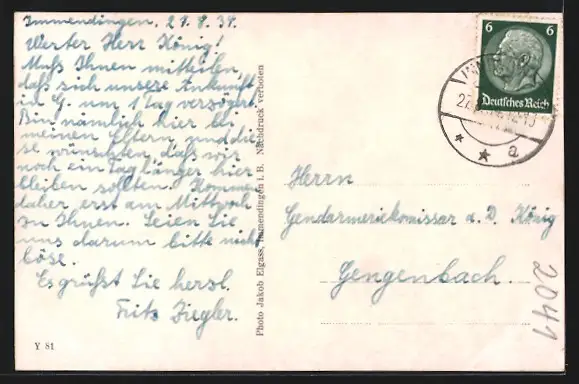 Immendingen, 27.8.34.
Werter Herr König!
Muß Ihnen mitteilen,
daß sich unsere Ankunft
in G. um 1 Tag verzögert.
Bin nämlich hier bei
meinen Eltern und die-
se wünschten, daß wir
noch ein Tag länger hier
bleiben sollten. Kommen
daher erst am Mittwoch
zu Ihnen. Seien Sie
uns darum bitte nicht
böse.
Es grüßt Sie herzl.
Fritz Ziegler.
Y 81
Photo Jakob Elgass, Immendingen i. B. Nachdruck verboten
6 6
Deutsches Reich
a
Herrn
Gendarmeriekomissar a. D. König
Gengenbach.
2041